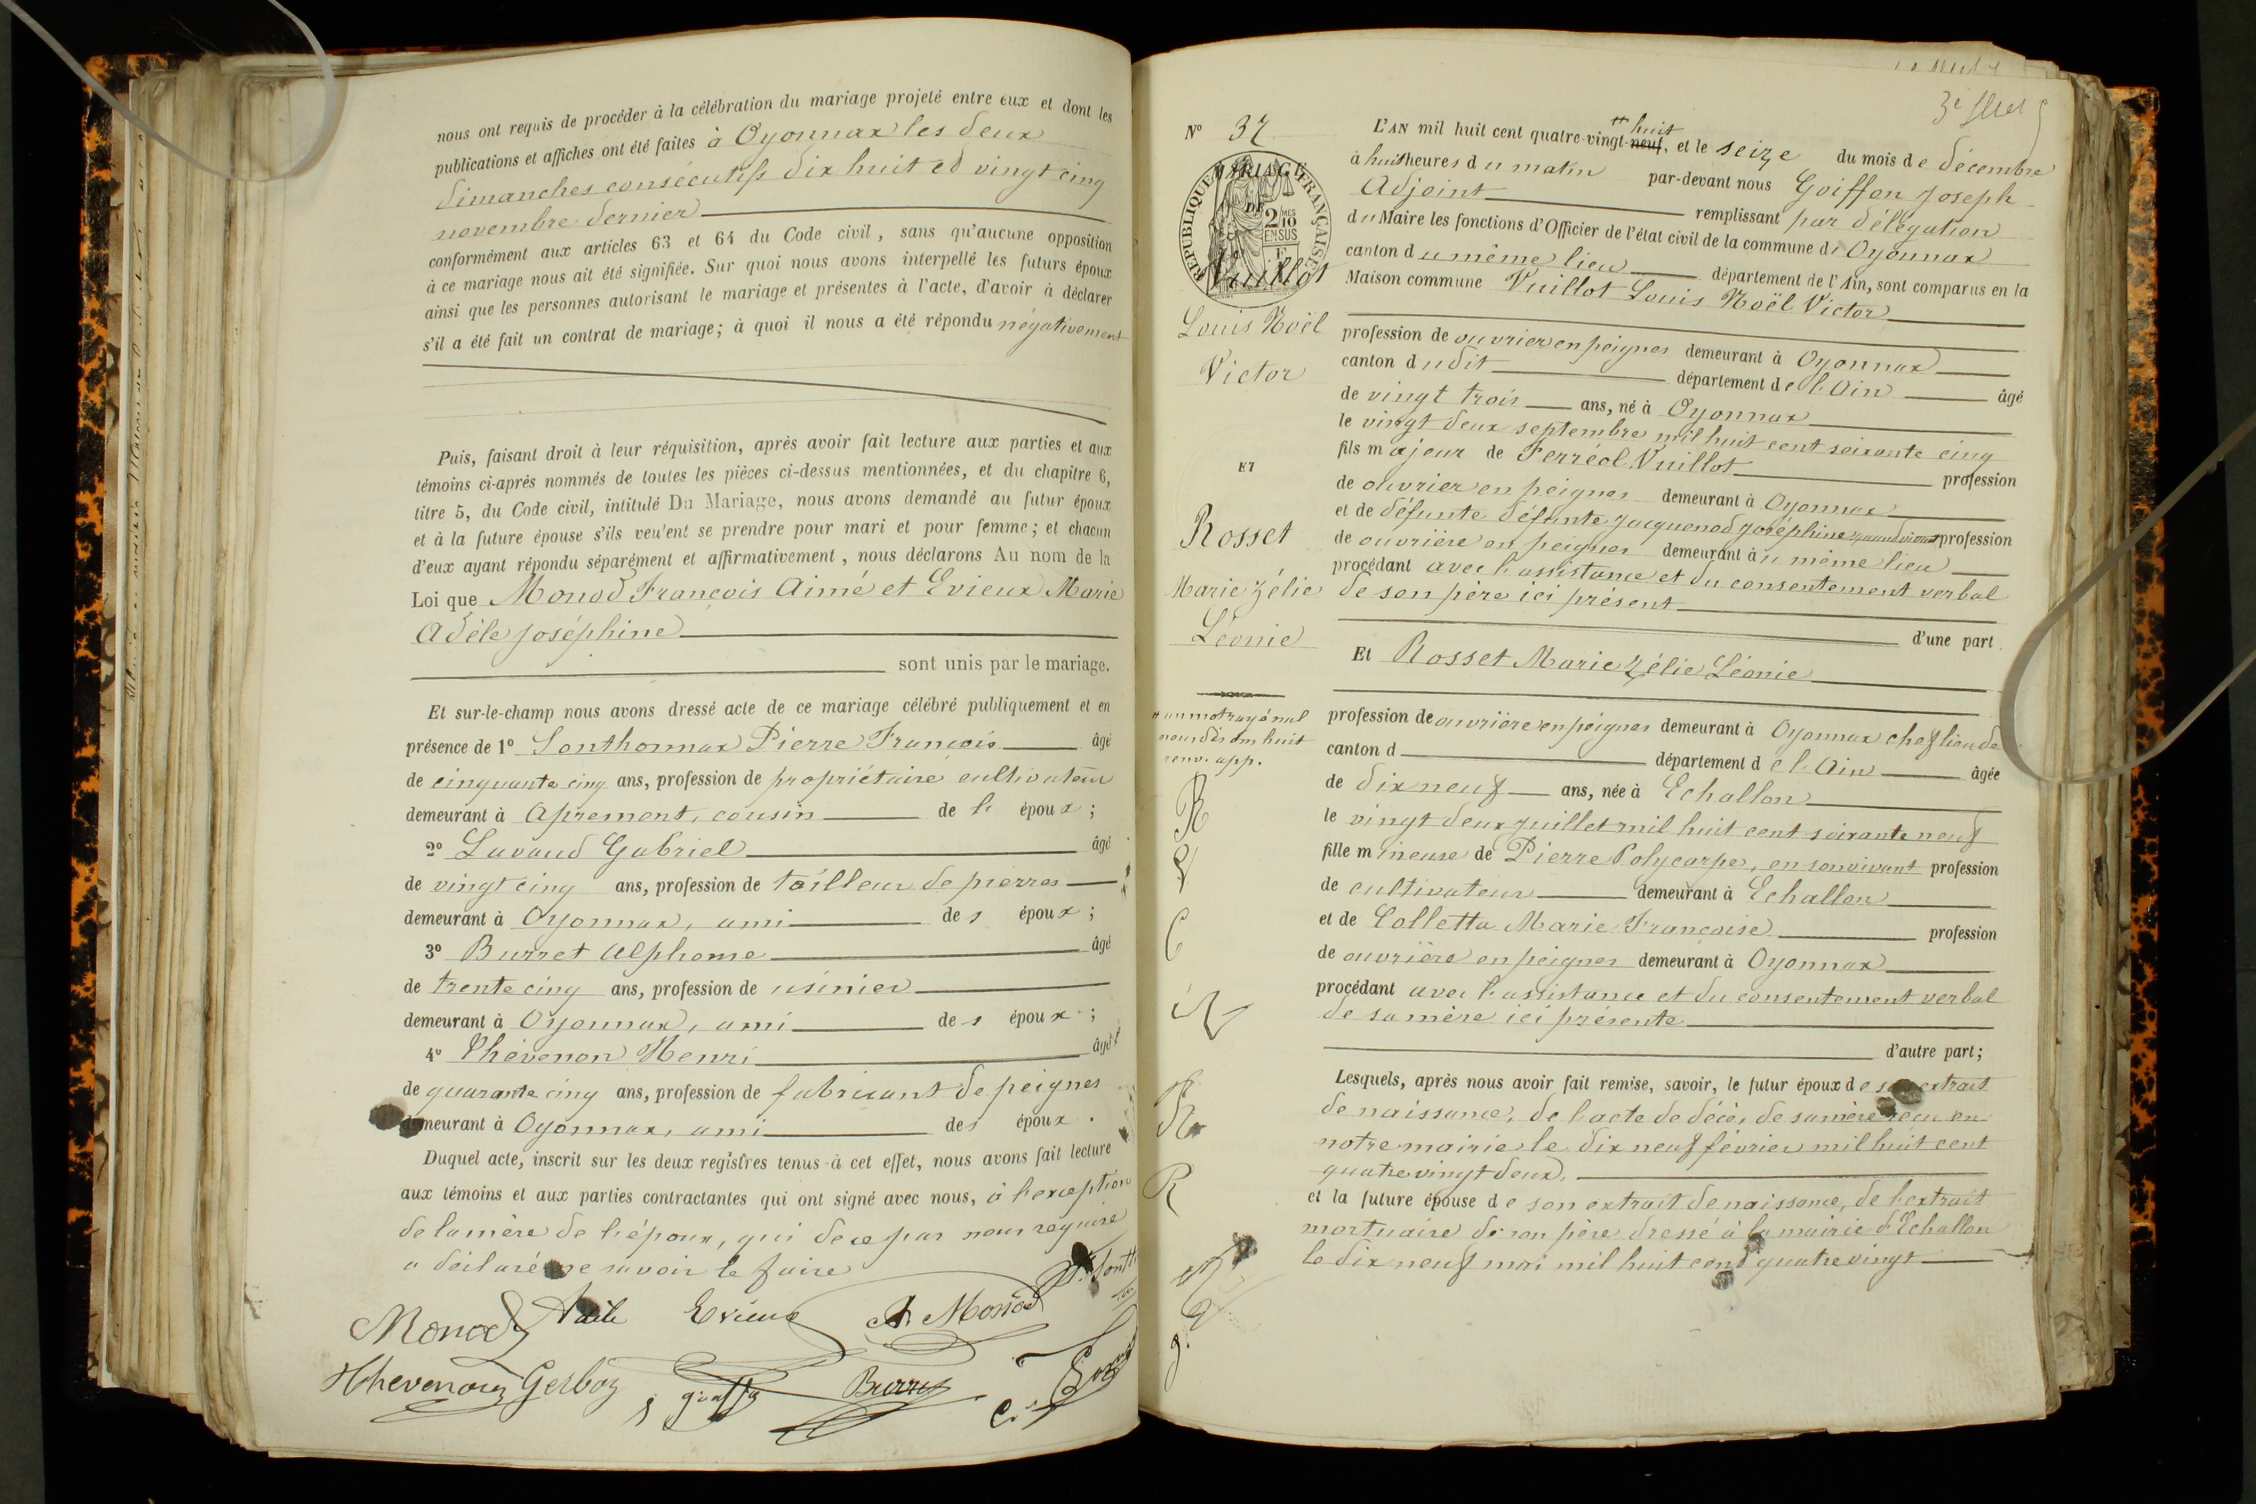 nous ont requis de procéder à la célébration du mariage projeté entre eux et dont les
publications et affiches ont été faites à Oyonnax les deux
dimanches consécutifs dix huit et vingt cinq
novembre dernier
conformément aux articles 63 et 64 du Code civil, sans qu'aucune opposition
à ce mariage nous ait été signifiée. Sur quoi nous avons interpellé les futurs époux
ainsi que les personnes autorisant le mariage et présentes à l'acte, d'avoir à déclarer
s'il a été fait un contrat de mariage; à quoi il nous a été répondu négativement
Puis, faisant droit à leur réquisition, après avoir fait lecture aux parties et aux
témoins ci-après nommés de toutes les pièces ci-dessus mentionnées, et du chapitre 6,
titre 5, du Code civil, intitulé Du Mariage, nous avons demandé au futur époux
et à la future épouse s'ils veulent se prendre pour mari et pour femme; et chacun
d'eux ayant répondu séparément et affirmativement, nous déclarons Au nom de la
Loi que Monod François Aimé et Evieux Marie
Adèle Joséphine
sont unis par le mariage.
Et sur-le-champ nous avons dressé acte de ce mariage célébré publiquement et en
présence de 1° Sonthonnax Pierre François âgé
de cinquante cinq ans, profession de propriétaire cultivateur
demeurant à Apremont, cousin de l' époux;
2° Lavaud Gabriel âgé
de vingt cinq ans, profession de tailleur de pierres
demeurant à Oyonnax, ami des époux;
3° Burret Alphonse âgé
de trente cinq ans, profession de usinier
demeurant à Oyonnax, ami des époux;
4° Thévenon Henri âgé
de quarante cinq ans, profession de fabricant de peignes
demeurant à Oyonnax, ami des époux.
Duquel acte, inscrit sur les deux registres tenus à cet effet, nous avons fait lecture
aux témoins et aux parties contractantes qui ont signé avec nous, à l'exception
de la mère de l'époux, qui de ce par nous requise
a déclaré ne savoir le faire
Monod Adèle Evieux A Monod
Hthevenon Gerboz Burret
N° 37
MARIAGE
DE
RÉPUBLIQUE FRANÇAISE
2 MES 10 EN SUS
Vuillot
Louis Noël
Victor
ET
Rosset
Marie Zélie
Léonie
un mot rayé nul
L'AN mil huit cent quatre-vingt-neuf, huit et le seize du mois de décembre
à huit heures du matin par-devant nous Goiffon Joseph
Adjoint remplissant par délégation
du Maire les fonctions d'Officier de l'état civil de la commune d' Oyonnax
canton du même lieu département de l'Ain, sont comparus en la
Maison commune Vuillot Louis Noël Victor
profession de ouvrier en peignes demeurant à Oyonnax
canton dudit département de l'Ain âgé
de vingt trois ans, né à Oyonnax
le vingt deux septembre mil huit cent soixante cinq
fils majeur de Ferréol Vuillot profession
de ouvrier en peignes demeurant à Oyonnax
et de défunte défunte Jacquenod Joséphine profession
de ouvrière en peignes demeurant au même lieu
procédant avec l'assistance et du consentement verbal
de son père ici présent
d'une part
Et Rosset Marie Zélie Léonie
profession de ouvrière en peignes demeurant à Oyonnax chef lieu de
canton d département de l'Ain âgée
de dix neuf ans, née à Echallon
le vingt deux juillet mil huit cent soixante neuf
fille mineure de Pierre Polycarpe, en son vivant profession
de cultivateur demeurant à Echallon
et de Colletta Marie Françoise profession
de ouvrière en peignes demeurant à Oyonnax
procédant avec l'assistance et du consentement verbal
de sa mère ici présente
d'autre part;
Lesquels, après nous avoir fait remise, savoir, le futur époux de son extrait
de naissance, de l'acte de décès de sa mère reçu en
notre mairie le dix neuf février mil huit cent
quatre vingt deux.
et la future épouse de son extrait de naissance, de l'extrait
mortuaire de son père dressé à la mairie d'Echallon
le dix neuf mai mil huit cent quatre vingt